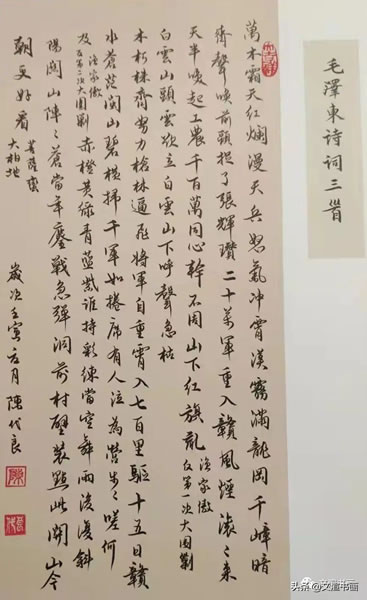 毛澤東詩詞三首
萬木霜天紅爛漫天兵怒氣冲霄漢霧滿龍岡千嶂暗
齊聲喚前頭捉了張輝瓚二十萬軍重入贛風煙滾々來
天半喚起工農千百萬同心幹不周山下紅旗亂 漁家傲
反第一次大圍剿
白雲山頭雲欲立白雲山下呼聲急枯
木朽株齊努力槍林逼飛將軍自重霄入七百里驅十五日贛
水蒼茫閩山碧橫掃千軍如捲席有人泣為營步々嗟何
及 漁家傲
反第二次大圍剿
赤橙黃綠青藍紫誰持彩練當空舞雨後復斜
陽關山陣々蒼當年鏖戰急彈洞前村壁裝點此關山今
朝更好看 菩薩蠻
大柏地
歲次壬寅 月陳代良
头条 @文童书画